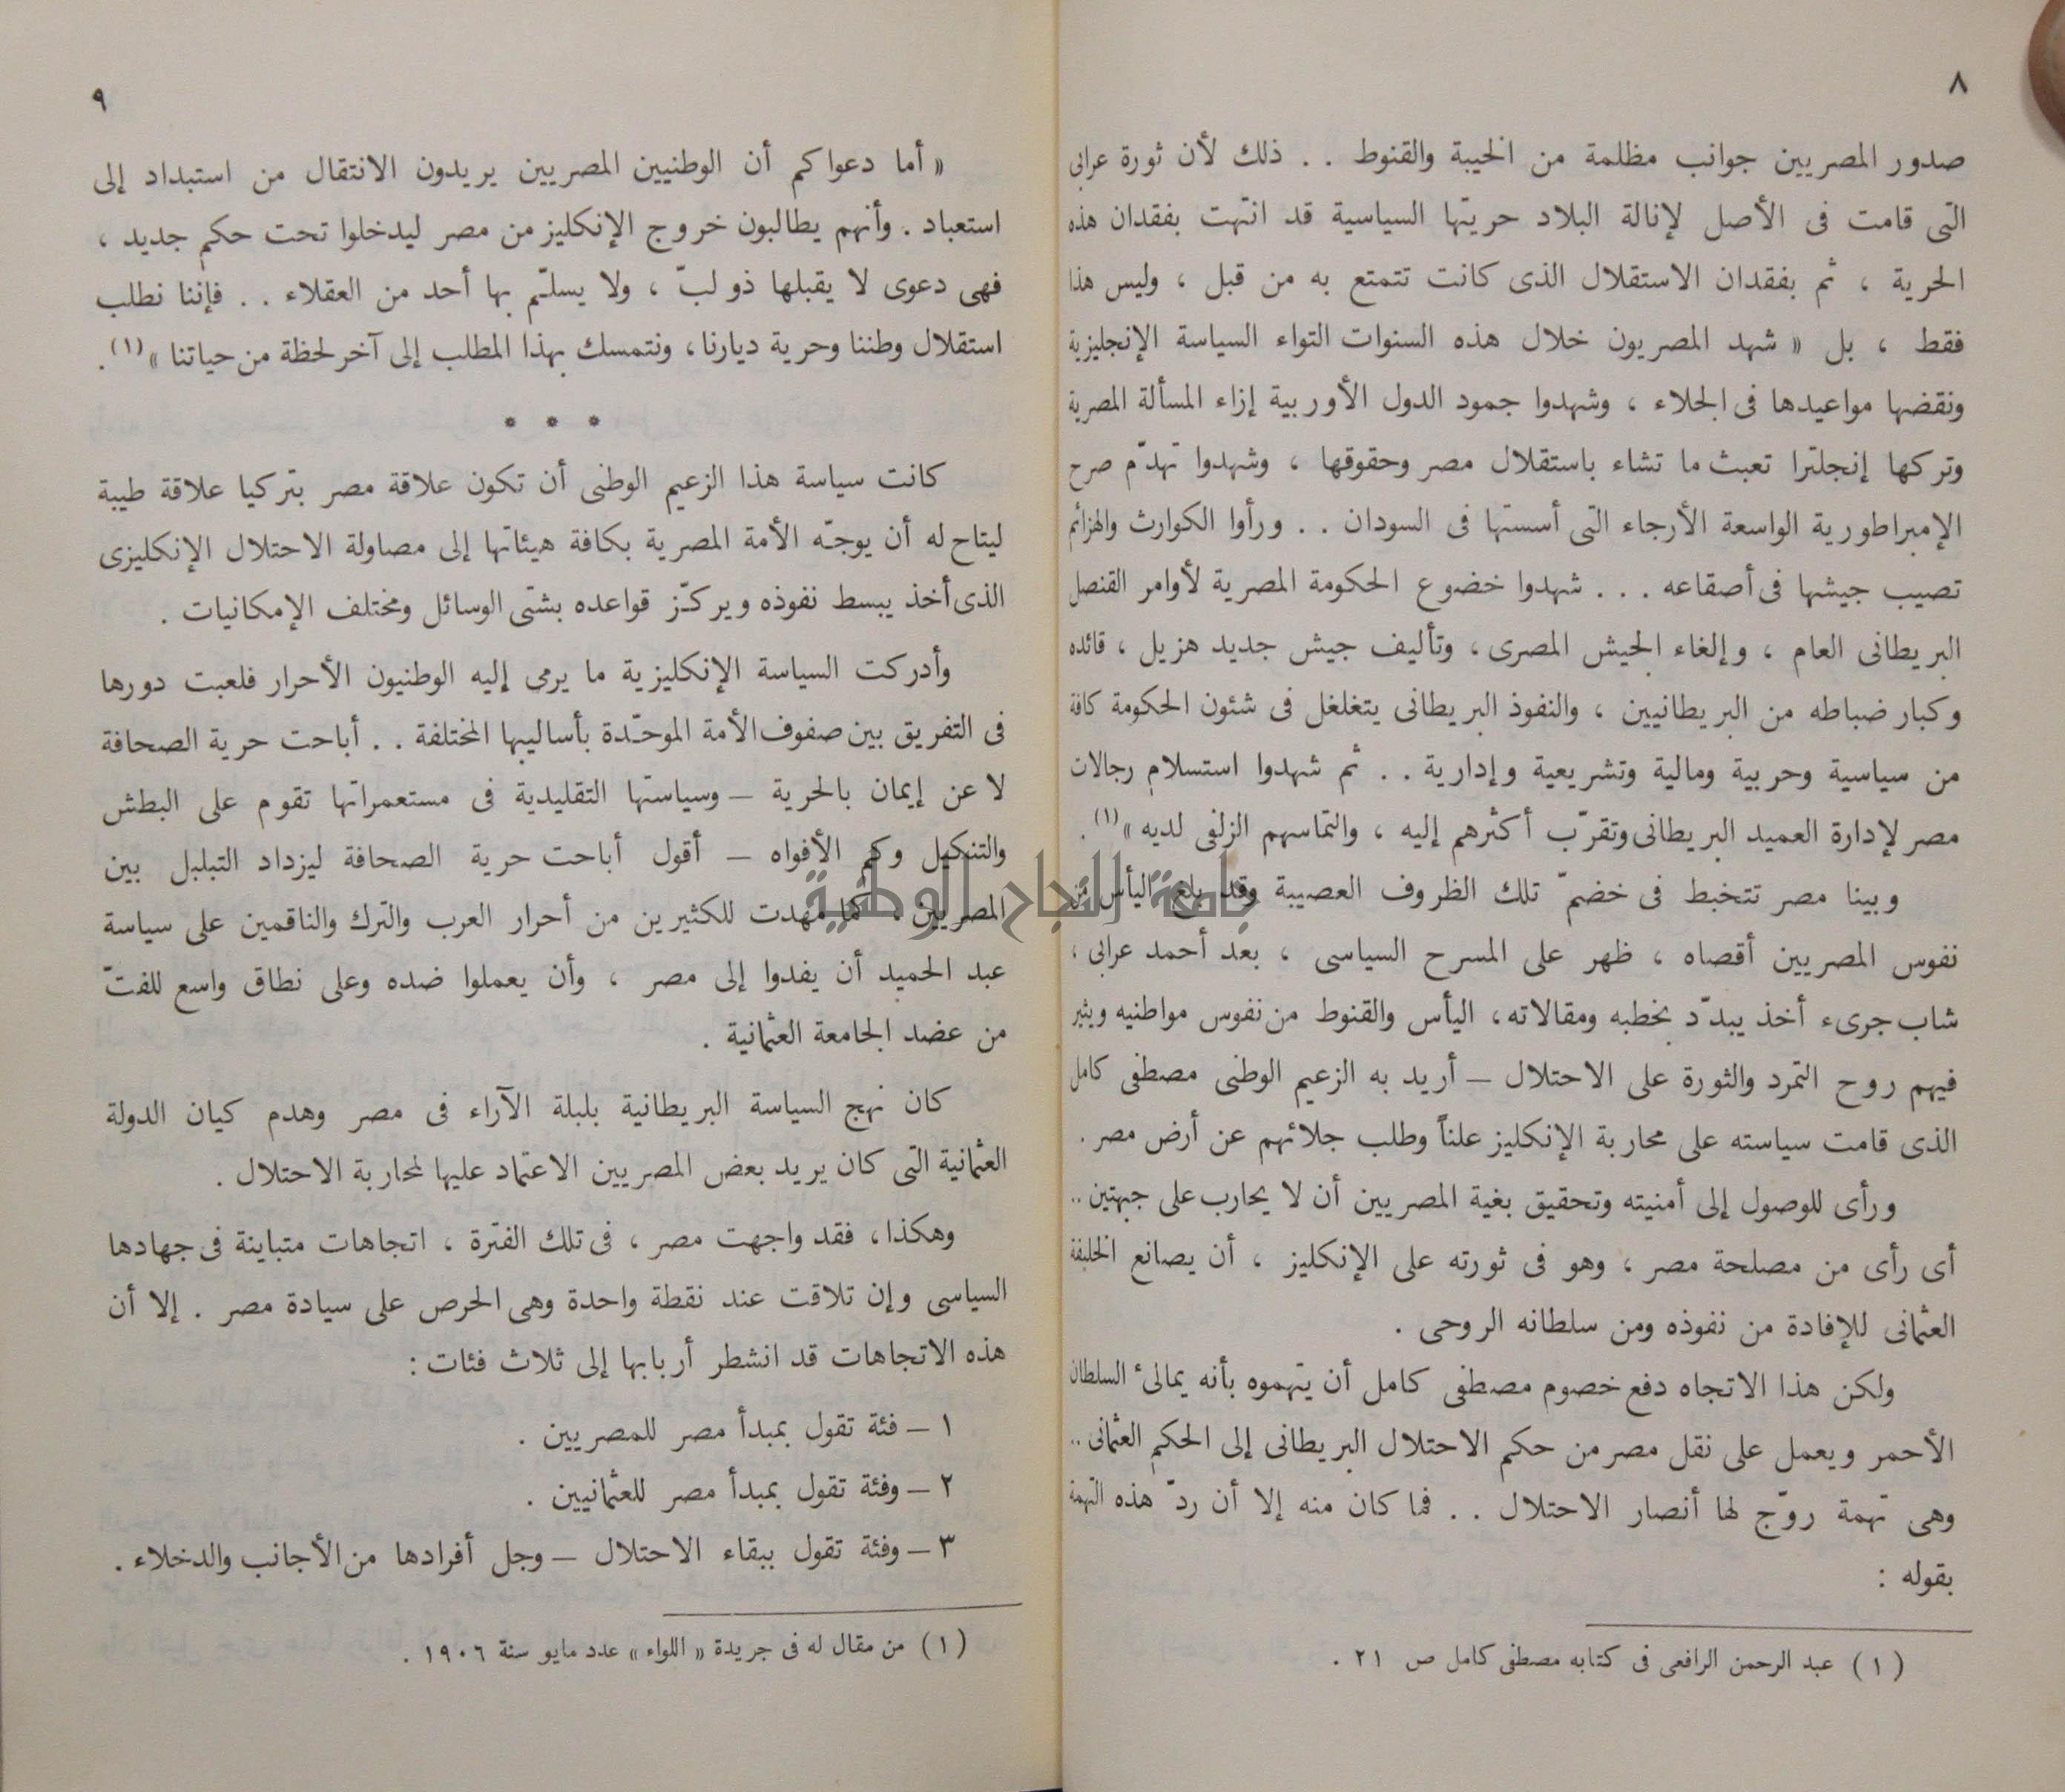 ٨
صدور المصريين جوانب مظلمة من الخيبة والقنوط . . ذلك لأن ثورة عرابى
التى قامت فى الأصل لإنالة البلاد حريتها السياسية قد انتهت بفقدان هذه
الحرية ، ثم بفقدان الاستقلال الذى كانت تتمتع به من قبل ، وليس هذا
فقط ، بل « شهد المصريون خلال هذه السنوات التواء السياسة الإنجليزية
ونقضها مواعيدها فى الجلاء ، وشهدوا جمود الدول الأوربية إزاء المسألة المصرية
وتركها إنجلترا تعبث ما تشاء باستقلال مصر وحقوقها ، وشهدوا تهدّم صرح
الإمبراطورية الواسعة الأرجاء التى أسستها فى السودان . . ورأوا الكوارث والهزائم
تصيب جيشها فى أصقاعه . . . شهدوا خضوع الحكومة المصرية لأوامر القنصل
البريطانى العام ، وإلغاء الجيش المصرى ، وتأليف جيش جديد هزيل ، قائده
وكبار ضباطه من البريطانيين ، والنفوذ البريطانى يتغلغل فى شئون الحكومة كافة
من سياسية وحربية ومالية وتشريعية وإدارية . . ثم شهدوا استسلام رجالات
مصر لإدارة العميد البريطانى وتقرّب أكثرهم إليه ، والتماسهم الزلفى لديه »(١) .
وبينا مصر تتخبط فى خضمّ تلك الظروف العصيبة وقد بلغ اليأس من
نفوس المصريين أقصاه ، ظهر على المسرح السياسى ، بعد أحمد عرابى ،
شاب جرىء أخذ يبدّد بخطبه ومقالاته ، اليأس والقنوط من نفوس مواطنيه ويثير
فيهم روح التمرد والثورة على الاحتلال – أريد به الزعيم الوطنى مصطفى كامل
الذى قامت سياسته على محاربة الإنكليز علناً وطلب جلائهم عن أرض مصر .
ورأى للوصول إلى أمنيته وتحقيق بغية المصريين أن لا يحارب على جبهتين ..
أى رأى من مصلحة مصر ، وهو فى ثورته على الإنكليز ، أن يصانع الخليفة
العثمانى للإفادة من نفوذه ومن سلطانه الروحى .
ولكن هذا الاتجاه دفع خصوم مصطفى كامل أن يتهموه بأنه يمالئ السلطان
الأحمر ويعمل على نقل مصر من حكم الاحتلال البريطانى إلى الحكم العثمانى ..
وهى تهمة روّج لها أنصار الاحتلال . . فما كان منه إلا أن ردّ هذه التهمة
بقوله :
(١) عبد الرحمن الرافعى فى كتابه مصطفى كامل ص ٢١ .
٩
« أما دعواكم أن الوطنيين المصريين يريدون الانتقال من استبداد إلى
استعباد . وأنهم يطالبون خروج الإنكليز من مصر ليدخلوا تحت حكم جديد ،
فهى دعوى لا يقبلها ذو لبّ ، ولا يسلّم بها أحد من العقلاء . . فإننا نطلب
استقلال وطننا وحرية ديارنا ، ونتمسك بهذا المطلب إلى آخر لحظة من حياتنا »(١) .
* * *
كانت سياسة هذا الزعيم الوطنى أن تكون علاقة مصر بتركيا علاقة طيبة
ليتاح له أن يوجّه الأمة المصرية بكافة هيئاتها إلى مصاولة الاحتلال الإنكليزى
الذى أخذ يبسط نفوذه ويركّز قواعده بشتى الوسائل ومختلف الإمكانيات .
وأدركت السياسة الإنكليزية ما يرمى إليه الوطنيون الأحرار فلعبت دورها
فى التفريق بين صفوف الأمة الموحّدة بأساليبها المختلفة . . أباحت حرية الصحافة
لا عن إيمان بالحرية – وسياستها التقليدية فى مستعمراتها تقوم على البطش
والتنكيل وكم الأفواه – أقول أباحت حرية الصحافة ليزداد التبلبل بين
المصريين ، كما مهدت للكثيرين من أحرار العرب والترك والناقمين على سياسة
عبد الحميد أن يفدوا إلى مصر ، وأن يعملوا ضده وعلى نطاق واسع للفتّ
من عضد الجامعة العثمانية .
كان نهج السياسة البريطانية بلبلة الآراء فى مصر وهدم كيان الدولة
العثمانية التى كان يريد بعض المصريين الاعتماد عليها لمحاربة الاحتلال .
وهكذا ، فقد واجهت مصر ، فى تلك الفترة ، اتجاهات متباينة فى جهادها
السياسى وإن تلاقت عند نقطة واحدة وهى الحرص على سيادة مصر . إلا أن
هذه الاتجاهات قد انشطر أربابها إلى ثلاث فئات :
١ – فئة تقول بمبدأ مصر للمصريين .
٢ – وفئة تقول بمبدأ مصر للعثمانيين .
٣ – وفئة تقول ببقاء الاحتلال – وجل أفرادها من الأجانب والدخلاء .
(١) من مقال له فى جريدة « اللواء » عدد مايو سنة ١٩٠٦ .
جامعة النجاح الوطنية